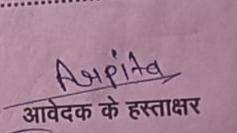 Arpita
आवेदक के हस्ताक्षर